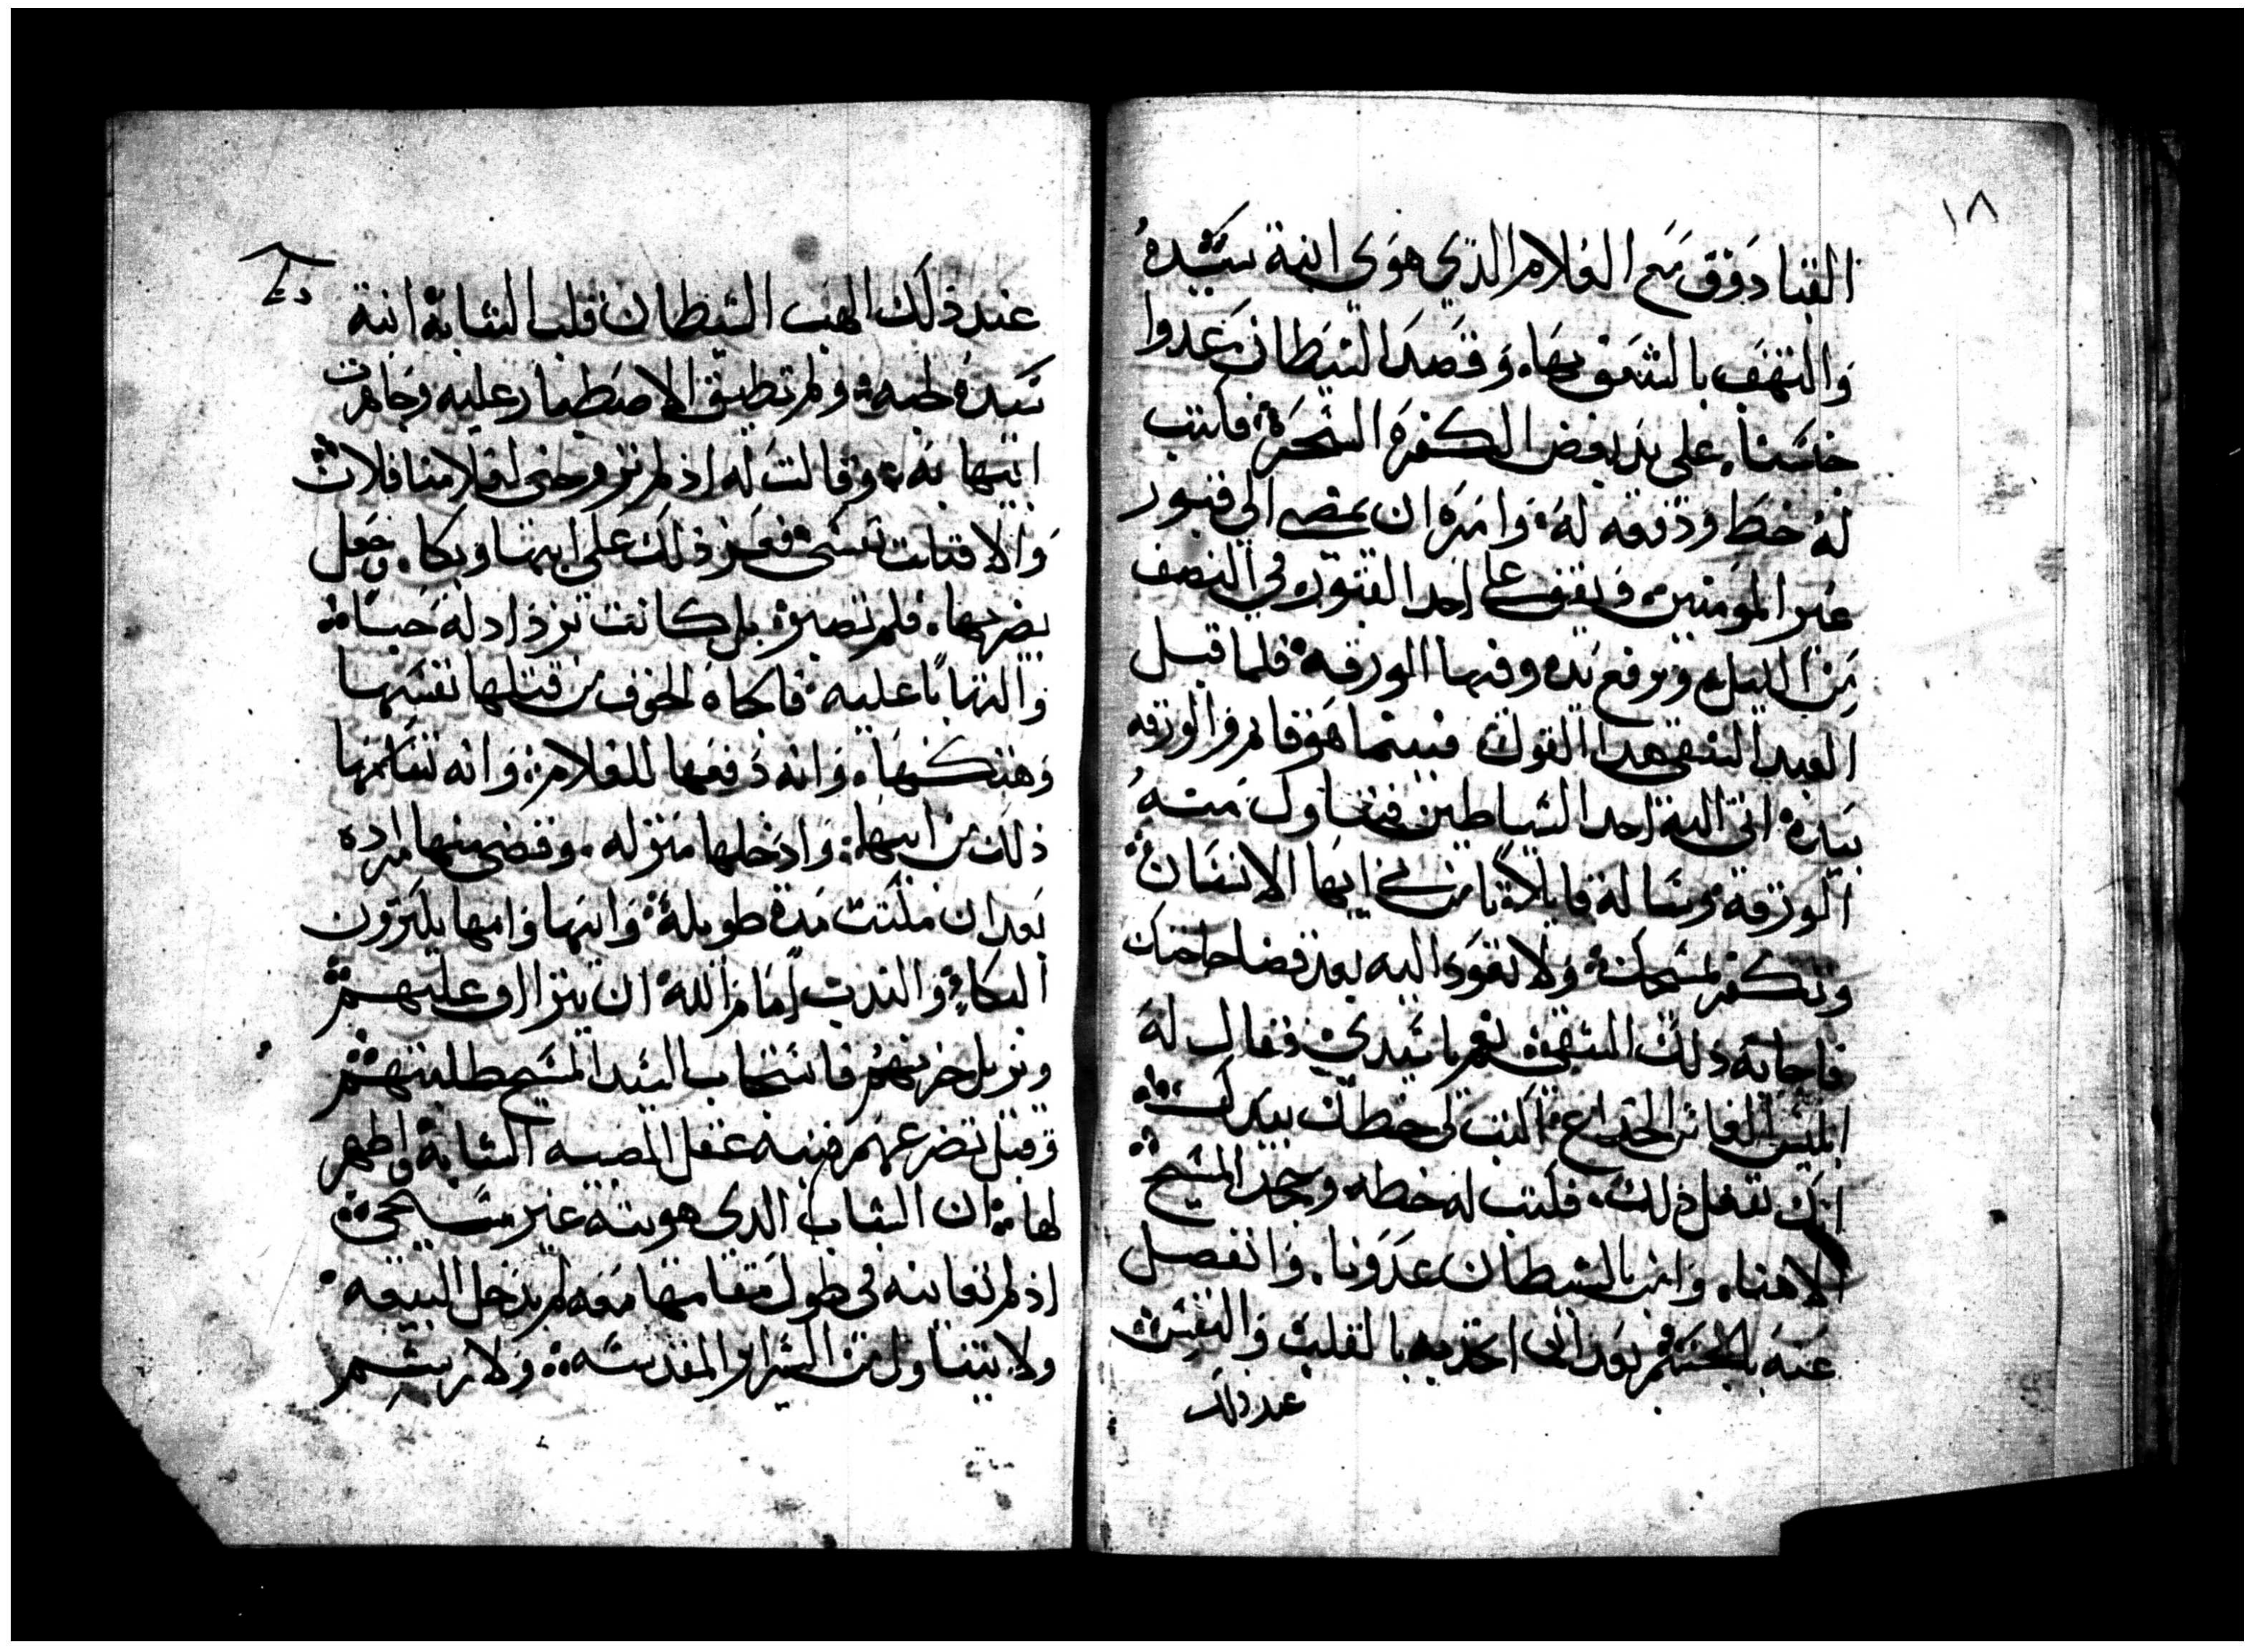 ١٨
القبا دوقق مع الغلام الذي هوي ابنة سيده
والتهف بالشغف بها. وقصد الشيطان عدوا
خاسنا. على يد بعض الكفرة السحرة فاكتب
له خط ودفعه له وامره ان يمضي الى قبور
غير المومنين ويقف على احد القبور في النصف
من الليل ويرفع يده وفيها الورقه فلما قبل
العبد الشقي هدا القول فبينما هو قايم والورقه
بيده اتى اليه احد الشياطين فتناول منه
الورقة وساله قايلا تامن بي ايها الانسان
وتكفر بمسيحك ولا تعود اليه بعد قضا حاجتك
فاجابه ذلك الشقي نعم يا سيدي فقال له
ابليس الغاش الخداع اكتب لي خطك بيدك
انك تفعل ذلك. فكتب له خطه وجحد المسيح
الاهنا. وامن بالشيطان عدونا. وانفصل
عنه بالجسم بعد ان اتحد به بالقلب والنفس
عند ذلك
عند ذلك الهب الشيطان قلب الشابة ابنة
سيده لحبه ولم تطيق الاصطبار عليه وجاهرت
ابيها به وقالت له اذ لم تزوجني لغلامنا فلان
والا قتلت نفسي فعز ذلك على ابيها وبكا. وجعل
يضربها. فلم تصبر بل كانت تزداد له حبا
والتهابا عليه فالجاه الخوف من قتلها نفسها
وهتكها. وانه دفعها للغلام وانه تسلمها
ذلك من ابيها وادخلها منزله. وقضى منها مراده
بعد ان مكتت مدة طويلة وابيها وامها يكترون
البكاء والندب امام الله ان يتراوف عليهم
ويزيل حزنهم فاستجاب السيد المسيح طلبتهم
وقبل تضرعهم فنبه عقل الصبيه الشابة واظهر
لها ان الشاب الدي هويته غير مسيحي
اذ لم تعاينه في طول مقامها معه لم يدخل البيعه
ولا يتناول من السراير المقدسه ولا يرشم